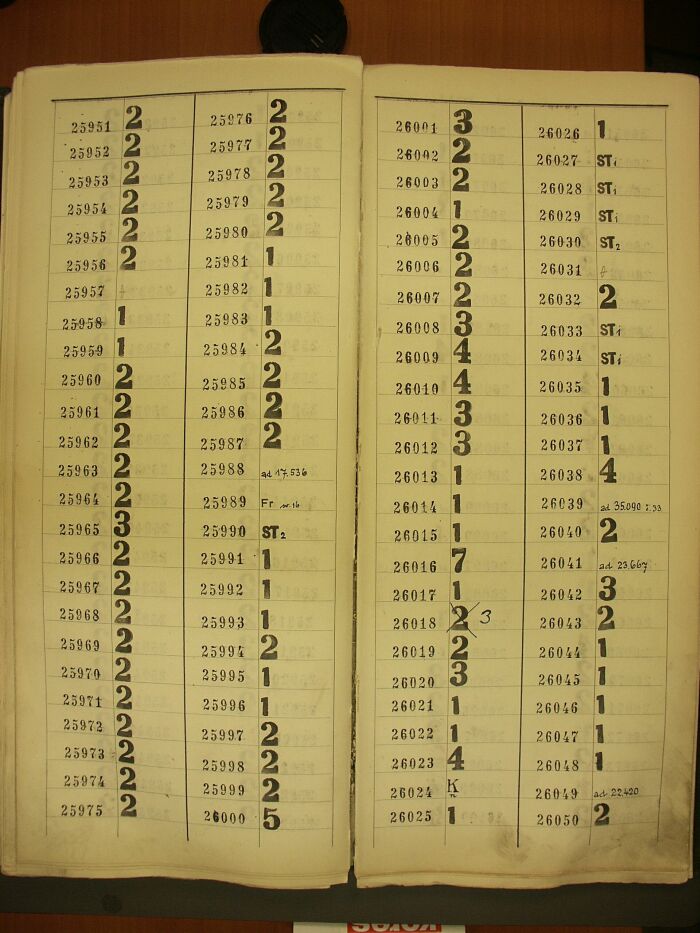 25951 2
25952 2
25953 2
25954 2
25955 2
25956 2
25957
25958 1
25959 1
25960 2
25961 2
25962 2
25963 2
25964 2
25965 3
25966 2
25967 2
25968 2
25969 2
25970 2
25971 2
25972 2
25973 2
25974 2
25975 2
25976 2
25977 2
25978 2
25979 2
25980 2
25981 1
25982 1
25983 1
25984 2
25985 2
25986 2
25987 2
25988 ad 17.536
25989 Fr nr. 16
25990 ST2
25991 1
25992 1
25993 1
25994 2
25995 1
25996 1
25997 2
25998 2
25999 2
26000 5
26001 3
26002 2
26003 2
26004 1
26005 2
26006 2
26007 2
26008 3
26009 4
26010 4
26011 3
26012 3
26013 1
26014 1
26015 1
26016 7
26017 1
26018 2 3
26019 2
26020 3
26021 1
26022 1
26023 4
26024 K
26025 1
26026 1
26027 ST1
26028 ST1
26029 ST1
26030 ST2
26031
26032 2
26033 ST1
26034 ST1
26035 1
26036 1
26037 1
26038 4
26039 ad 35.090
26040 2
26041 ad 23.667
26042 3
26043 2
26044 1
26045 1
26046 1
26047 1
26048 1
26049 ad 22.420
26050 2